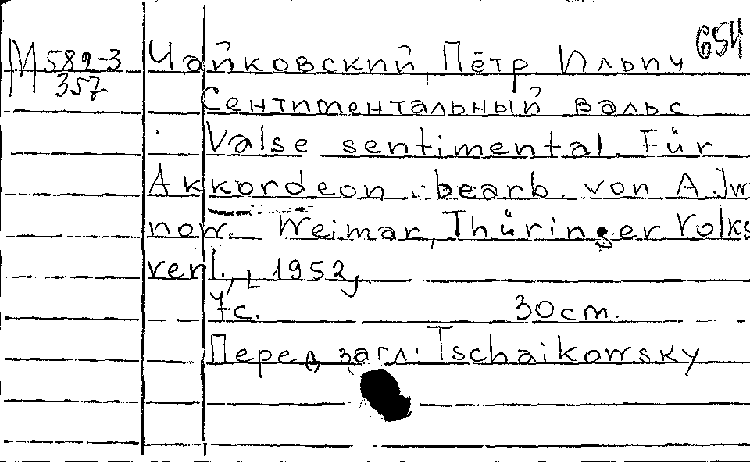 654
М 589-3 Чайковский, Пётр Ильич
357
Сентиментальный вальс
Valse sentimental. Für
Akkordeon bearb. von A. Jw
now. Weimar, Thüringer Volks
verl., [1952]
7 с. 30 cm.
Перед загл.: Tschaikowsky